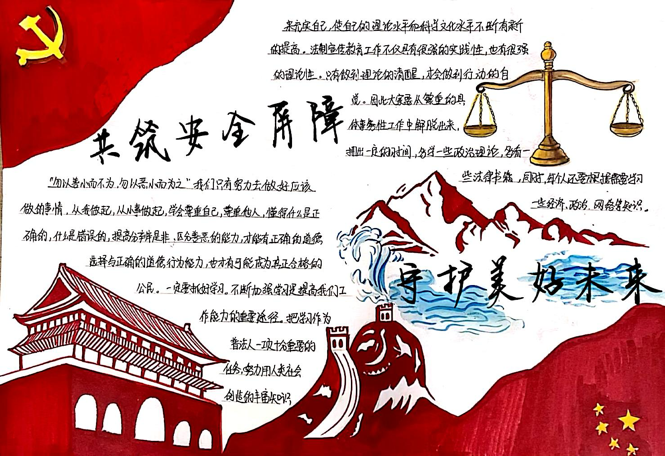 来充实自己,使自己的理论水平和科学文化水平不断有新
的提高。法制宣传教育工作不仅具有很强的实践性,也有很强
的理论性。只有做到理论的清醒,才会做到行动的自
觉。因此大家要从繁重的具
体事务性工作中解脱出来,
挤出一定的时间,多学一些政治理论,多看一
些法律书籍,同时,每人还要根据需要学习
一些经济、政治、网络等知识。
共筑安全屏障
"勿以恶小而不为,勿以善小而为之"我们只有努力去做好应该
做的事情,从我做起,从小事做起,学会尊重自己,尊重他人,懂得什么是正
确的,什么是错误的,提高分辨是非、区分善恶的能力,才能有正确的道德
选择与正确的道德行为能力,也才有可能成为真正合格的
公民。一定要抓好学习。不断加强学习是提高我们工
作能力的重要途径。把学习作为
普法人一项十分重要的
任务,努力用人类社会
创造的丰富知识
守护美好未来